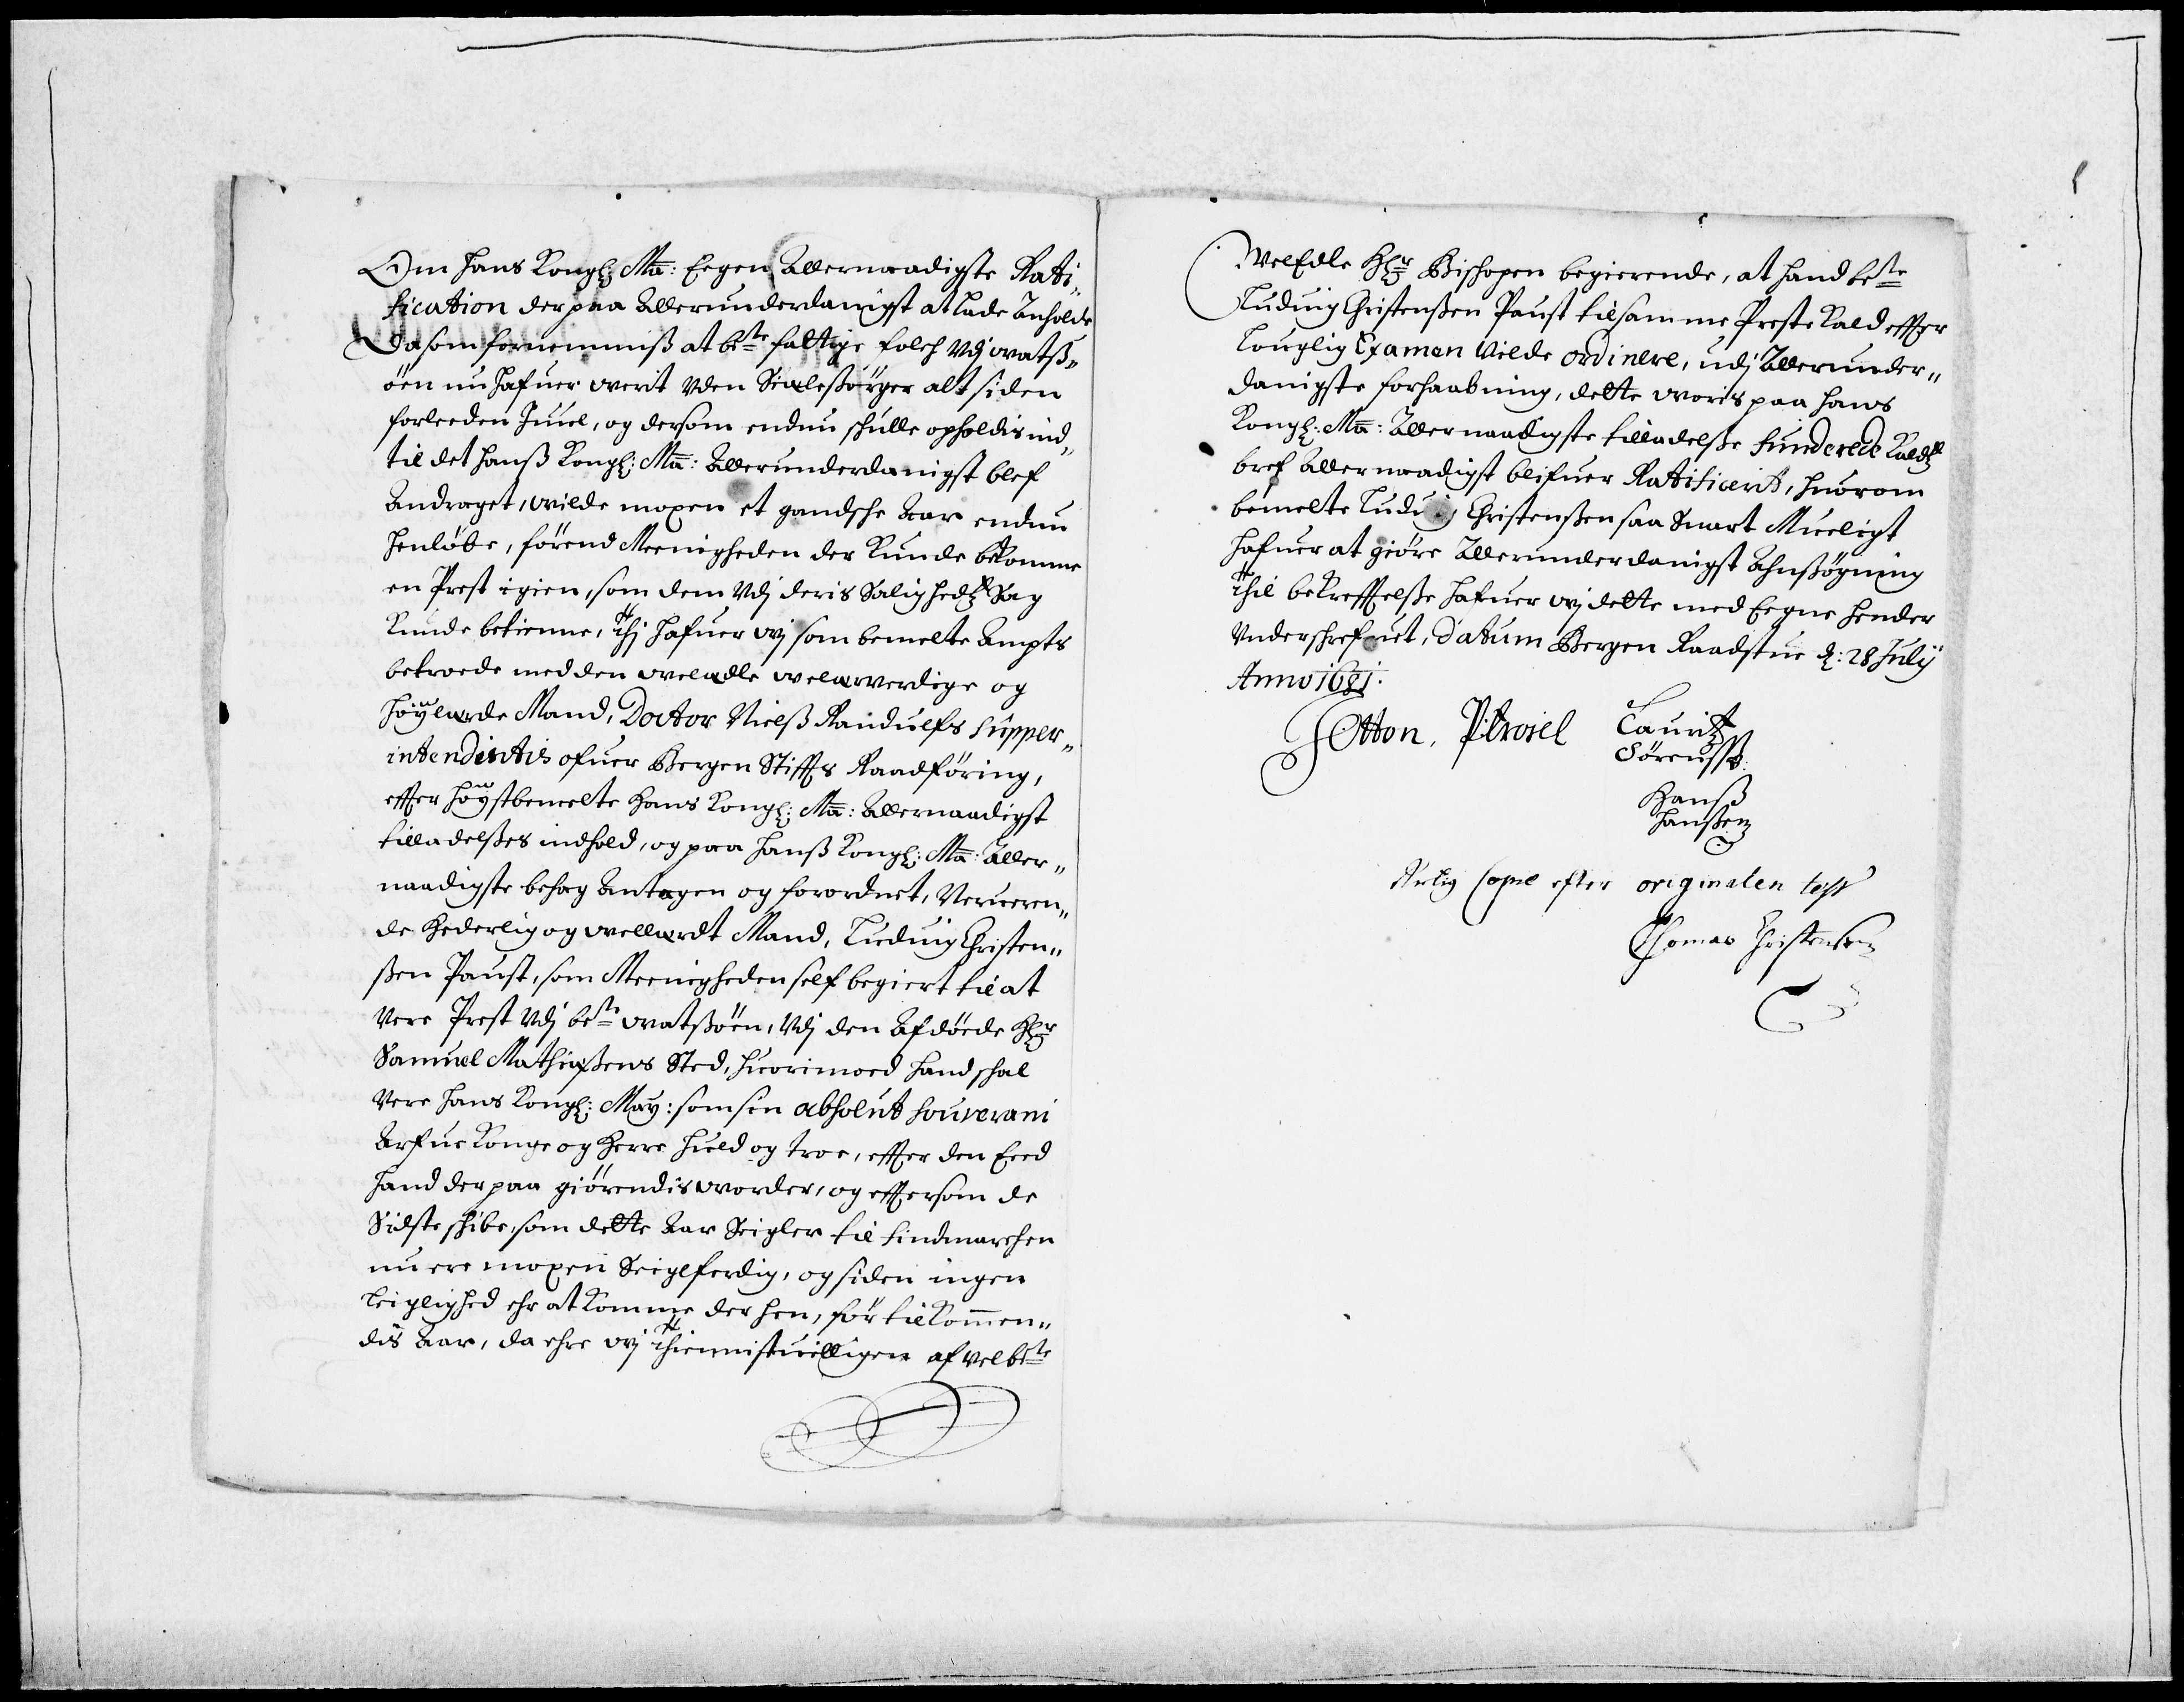 Om hans Kongl: Ma: Eegen Allernaadigste Rati„
fication der paa Allerunderdanigst at lade Anholde
Da som fornemmis at bete fattige folch Udj watsß„
öen nu hafuer werit uden Sielesßörger alt siden
forleeden Juel, og dersom endnu schulle opholdis ind„
til det hansß Kongl: Ma: Allerunderdanigst blef
Andraget, wilde moxen et gandsche Aar endnu
henlöbe, förend Meenigheden der Kunde bekomme
en Prest igien, som dem Udj deris Saligheds Sag
Kunde betienne, Thj hafuer wj som bemelte Ampts
betroede med den weledle welærwerdige og
höylærde Mand, Doctor Nielsß Randulfs Supper„
intendentis ofuer Bergen Stiffts Raadföring,
effter höystbemelte Hans Kongl: Ma: Allernaadigst
tilladelsßes indhold, og paa hansß Kongl: Ma: Aller„
naadigste behag Antagen og forordnet, Nerueren„
de Hederlig og wellærdt Mand, Ludvig Christen„
sßen Paust, som Meenigheden self begiert til at
vere Prest Udj bete watsßöen, Udj den Afdöde Hr
Samuel Mathiasßens Sted, huorimod hand schal
vere hans Kongl: May: som sin absolut souverani
Arfue Konge og Herre huld og troe, effter den Eed
hand der paa giörendis worder, og effter som de
Sidste schibe, som dette Aar Seigler til Findmarchen
nu ere moxen Seiglferdig, og siden ingen
leiglighed ehr at Komme der hen, för tilkommen„
dis Aar, da ehre wj Thienistuilligen af velbete
WelEdle Hr Bischopen begierende, at hand bete
Ludvig Christensßen Paust til samme Preste Kald effter
louglig Examen vilde ordinere, udj Allerunder„
danigste forhaabning, dette voris paa Hans
Kongl: Ma: Allernaadigste tilladelsße funderede Kalds
bref Allernaadigst blifuer Ratificerit, huorom
bemelte Ludvig Christensßen saa Snart Mueligt
hafuer at giöre Allerunderdanigst Ahnsßögning
Thil bekrefftelsße hafuer wj dette med Eegne hender
Underschrefuet, Datum Bergen Raadstue d: 28 Julij
Anno 1681.
JOtton, Pitrosel Lauritz
Sörensß:
Hansß
Hansßen
Rictig Copie efter originalen test
Thomas Christensen